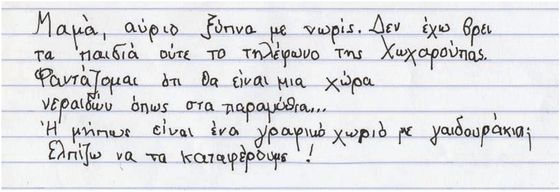 Μαμά, αύριο ξύπνα με νωρίς. Δεν έχω βρει
τα παιδιά ούτε το τηλέφωνο της Χωχαρούπας.
Φαντάζομαι ότι θα είναι μια χώρα
νεραιδών όπως στα παραμύθια...
Ή μήπως είναι ένα γραφικό χωριό με γαιδουράκια;
Ελπίζω να τα καταφέρουμε!